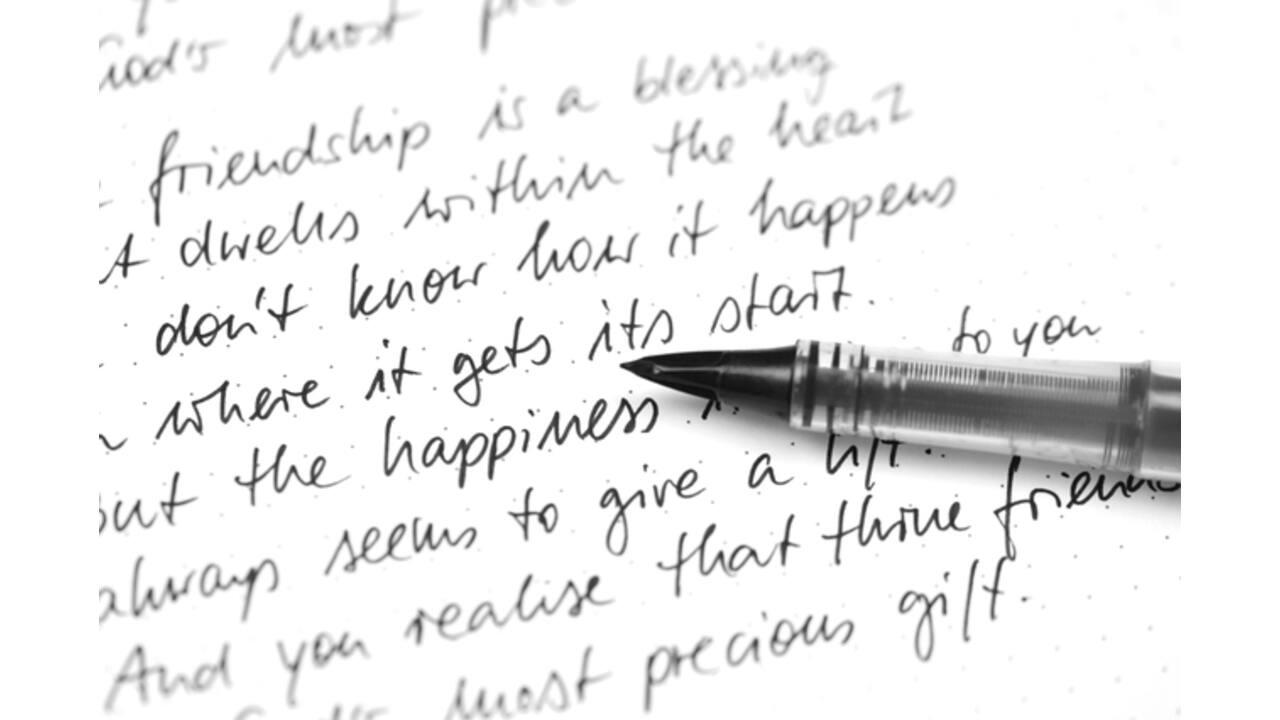 God's most
friendship is a blessing
t dwells within the heart
don't know how it happens
where it gets its start.
but the happiness to you
always seems to give a lift..
And you realise that thine frien
God's most precious gift.